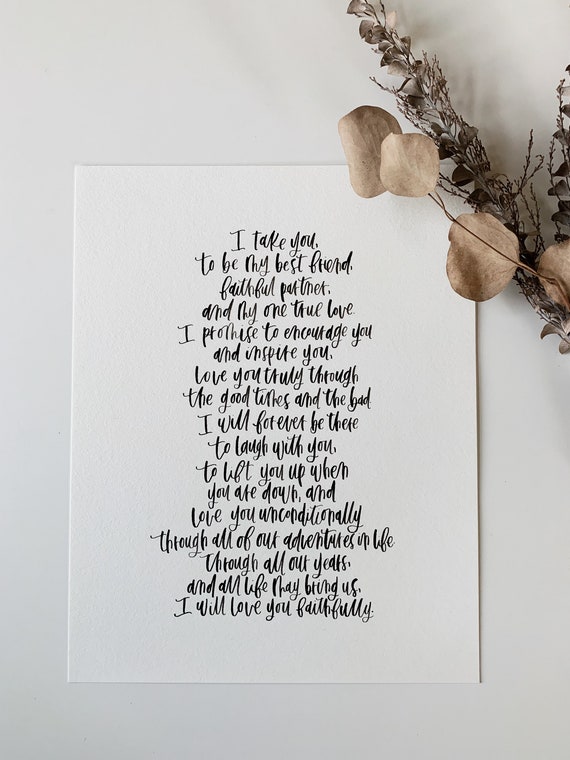 I take you,
to be my best friend,
faithful partner,
and my one true love.
I promise to encourage you
and inspire you,
love you truly through
the good times and the bad.
I will forever be there
to laugh with you,
to lift you up when
you are down, and
love you unconditionally
through all of our adventures in life.
Through all our years,
and all life may bring us,
I will love you faithfully.